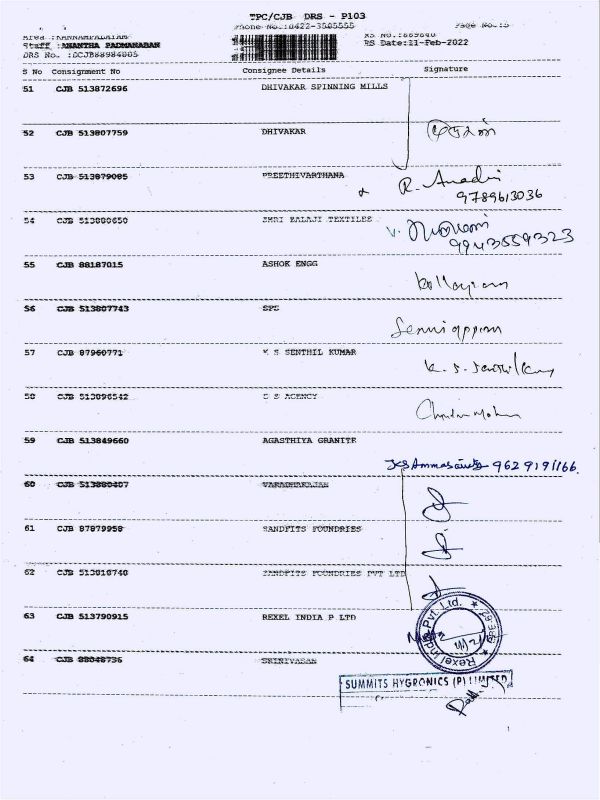 TPC/CJB DRS - P103
Phone No.:0422-3505555 Page No.:5
Area :KANNAMPALAYAM RS No.:889840
Staff :ANANTHA PADMANABAN RS Date:11-Feb-2022
DRS No. :DCJB88984005
S No Consignment No Consignee Details Signature
51 CJB 513872696 DHIVAKAR SPINNING MILLS
52 CJB 513807759 DHIVAKAR
53 CJB 513879085 PREETHIVARTHANA
9789613036
54 CJB 513880650 SHRI BALAJI TEXTILES V.
9943559323
55 CJB 88187015 ASHOK ENGG
56 CJB 513807743 SPS
57 CJB 87960771 V S SENTHIL KUMAR
58 CJB 513896542 S S AGENCY
59 CJB 513849660 AGASTHIYA GRANITE
9629191166
60 CJB 513880407 VARADHARAJAN
61 CJB 87879958 SANDFITS FOUNDRIES
62 CJB 513818740 SANDFITS FOUNDRIES PVT LTD
63 CJB 513790915 REXEL INDIA P LTD
Rexel India Pvt. Ltd.
64 CJB 88048736 SRINIVASAN
SUMMITS HYGRONICS (P) LIMITED